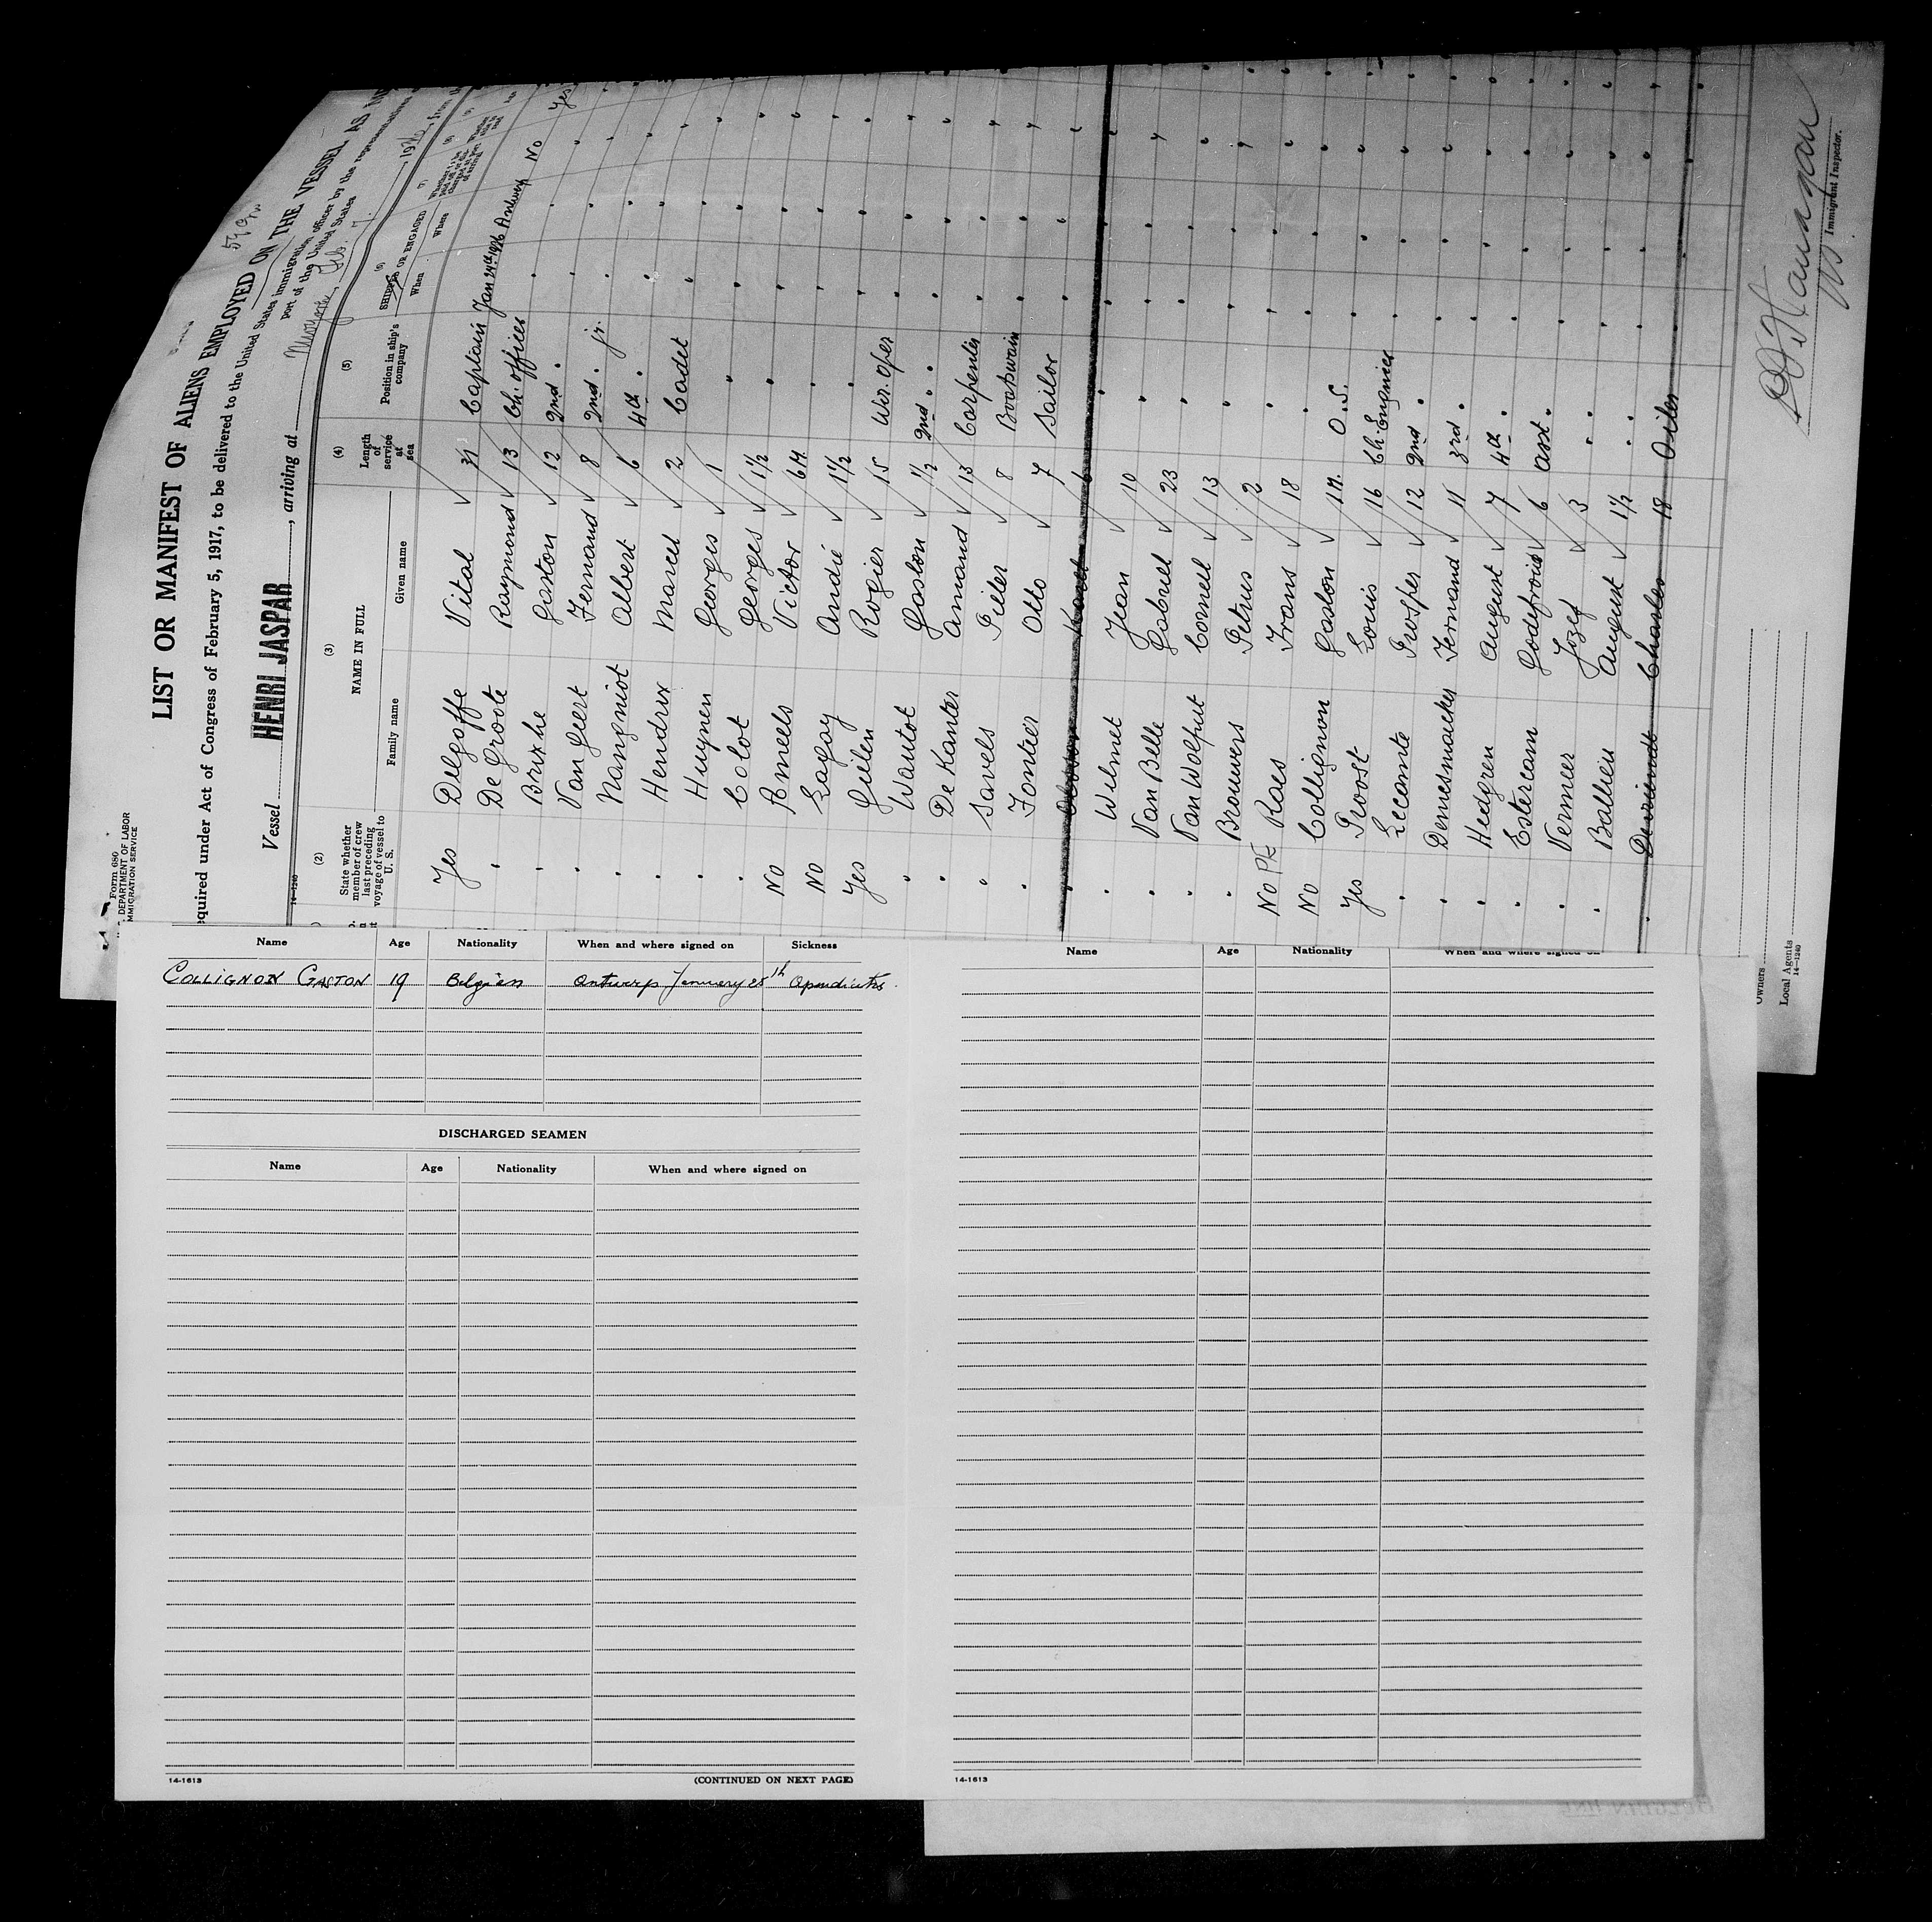 Form 680
DEPARTMENT OF LABOR
IMMIGRATION SERVICE
LIST OR MANIFEST OF ALIENS EMPLOYED ON THE VESSEL AS
equired under Act of Congress of February 5, 1917, to be delivered to the United States immigration officer by the representatives
port of the United States
Vessel HENRI JASPAR, arriving at New York, Feb. 7, 192
14-1240
(2) (3) (4) (5) (6) (7)
State whether member of crew last preceding voyage of vessel to U. S.
NAME IN FULL
Family name Given name
Length of service at sea
Position in ship's company
SHIPPED OR ENGAGED
When Where
Yes Delgoffe Vital 31 Captain Jan 24th 1926 Antwerp No Yes
" De Groote Raymond 13 Ch. officer
" Brixhe Gaston 12 2nd "
" Van Geert Fernand 8 2nd " jr.
" Mangniot Albert 6 4th "
" Hendrix Marcel 2 Cadet
" Huynen Georges 1 "
" Colot Georges 1½ "
No Ameels Victor "
No Lagay André 1½ "
Yes Gielen Rogier 15 Wir. Oper
" Wautot Gaston 1½ 2nd " "
" De Kanter Armand 13 Carpenter
" Savels Pieter 8 Boatswain
" Fontier Otto 7 Sailor
" Wilmet Jean 10 "
" Van Belle Gabriel 23 "
" Van Wolput Cornell 13 "
" Brouwers Petrus 2 "
No Raes Frans 18 "
No Collignon Gaston O.S.
Yes Proost Louis 16 Ch. Engineer
" Lecomte Prosper 12 2nd "
" Demesmacker Fernand 11 3rd "
" Hedgren August 7 4th "
" Estercam Godefroid 6 asst. "
" Vermeer Jozef 3 " "
" Ballien August 1½ " "
" Devriendt Charles 18 Oiler
Immigrant Inspector.
Owners
Local Agents
14-1240
Name Age Nationality When and where signed on Sickness
COLLIGNON GASTON 19 Belgian Antwerp January 25th Apendicitis.
DISCHARGED SEAMEN
Name Age Nationality When and where signed on
14-1613 (CONTINUED ON NEXT PAGE)
Name Age Nationality When and where signed on
14-1613